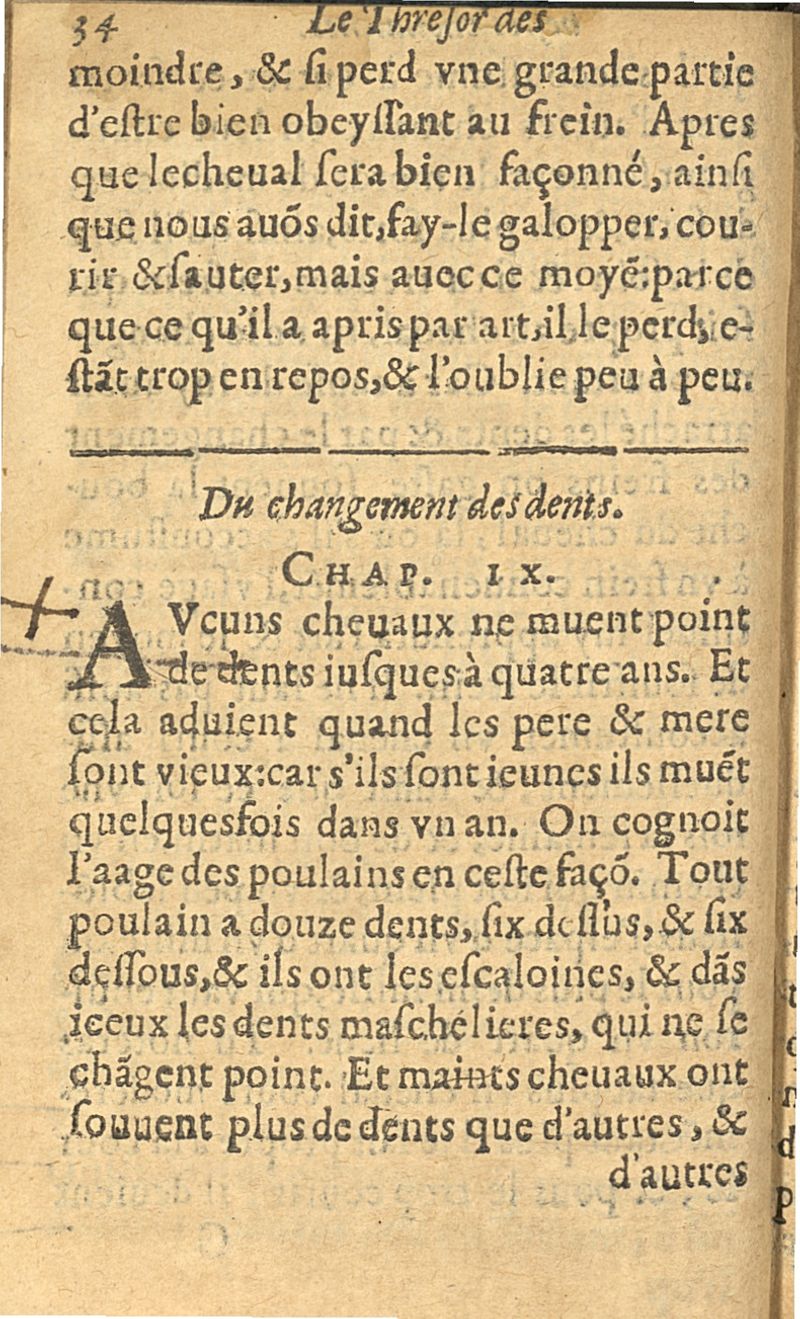 34 Le Thresor des
moindre, & ſi perd vne grande partie
d'eſtre bien obeyſſant au frein. Apres
que le cheual ſera bien façonné, ainſi
que nous auõs dit, fay-le galopper, cou-
rir & ſauter, mais auec ce moyẽ: parce
que ce qu'il a apris par art, il le perd, e-
ſtãt trop en repos, & l'oublie peu à peu.
Du changement des dents.
CHAP. IX.
AVcuns cheuaux ne muent point
de dents iuſques à quatre ans. Et
cela aduient quand les pere & mere
ſont vieux: car s'ils ſont ieunes ils muẽt
quelquesfois dans vn an. On cognoit
l'aage des poulains en ceſte façõ. Tout
poulain a douze dents, ſix deſſus, & ſix
deſſous, & ils ont les eſcaloines, & dãs
iceux les dents maſchelieres, qui ne ſe
chãgent point. Et maints cheuaux ont
ſouuent plus de dents que d'autres, &
d'autres